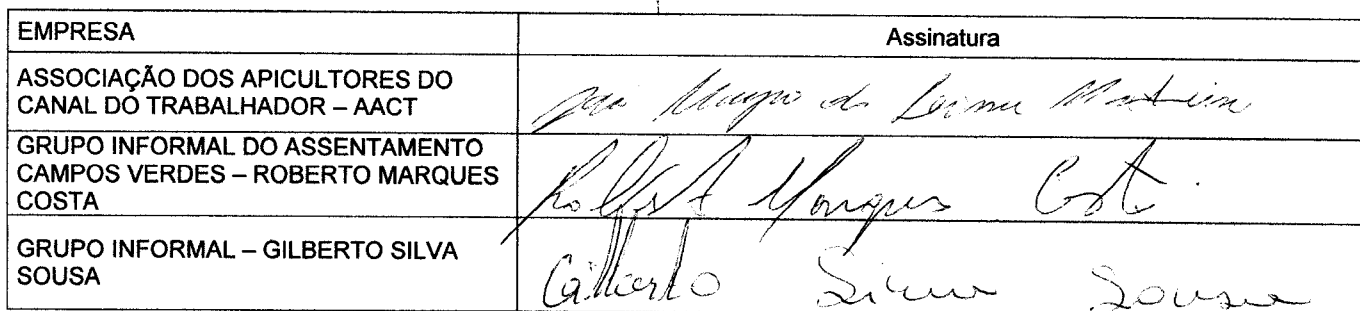 EMPRESA Assinatura
ASSOCIAÇÃO DOS APICULTORES DO
CANAL DO TRABALHADOR – AACT
GRUPO INFORMAL DO ASSENTAMENTO
CAMPOS VERDES – ROBERTO MARQUES
COSTA
Robert Marques Costa
GRUPO INFORMAL – GILBERTO SILVA
SOUSA
Gilberto Silva Sousa